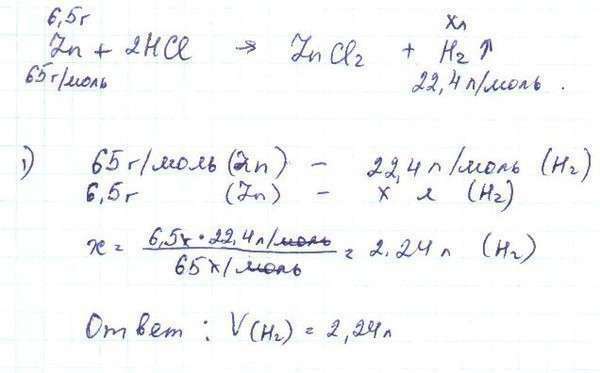 6,5г хл
Zn + 2HCl → ZnCl2 + H2↑
65г/моль 22,4л/моль.
1) 65г/моль (Zn) – 22,4л/моль (H2)
6,5г (Zn) – х л (H2)
х = 6,5г·22,4л/моль / 65г/моль = 2,24л (H2)
Ответ: V(H2) = 2,24л